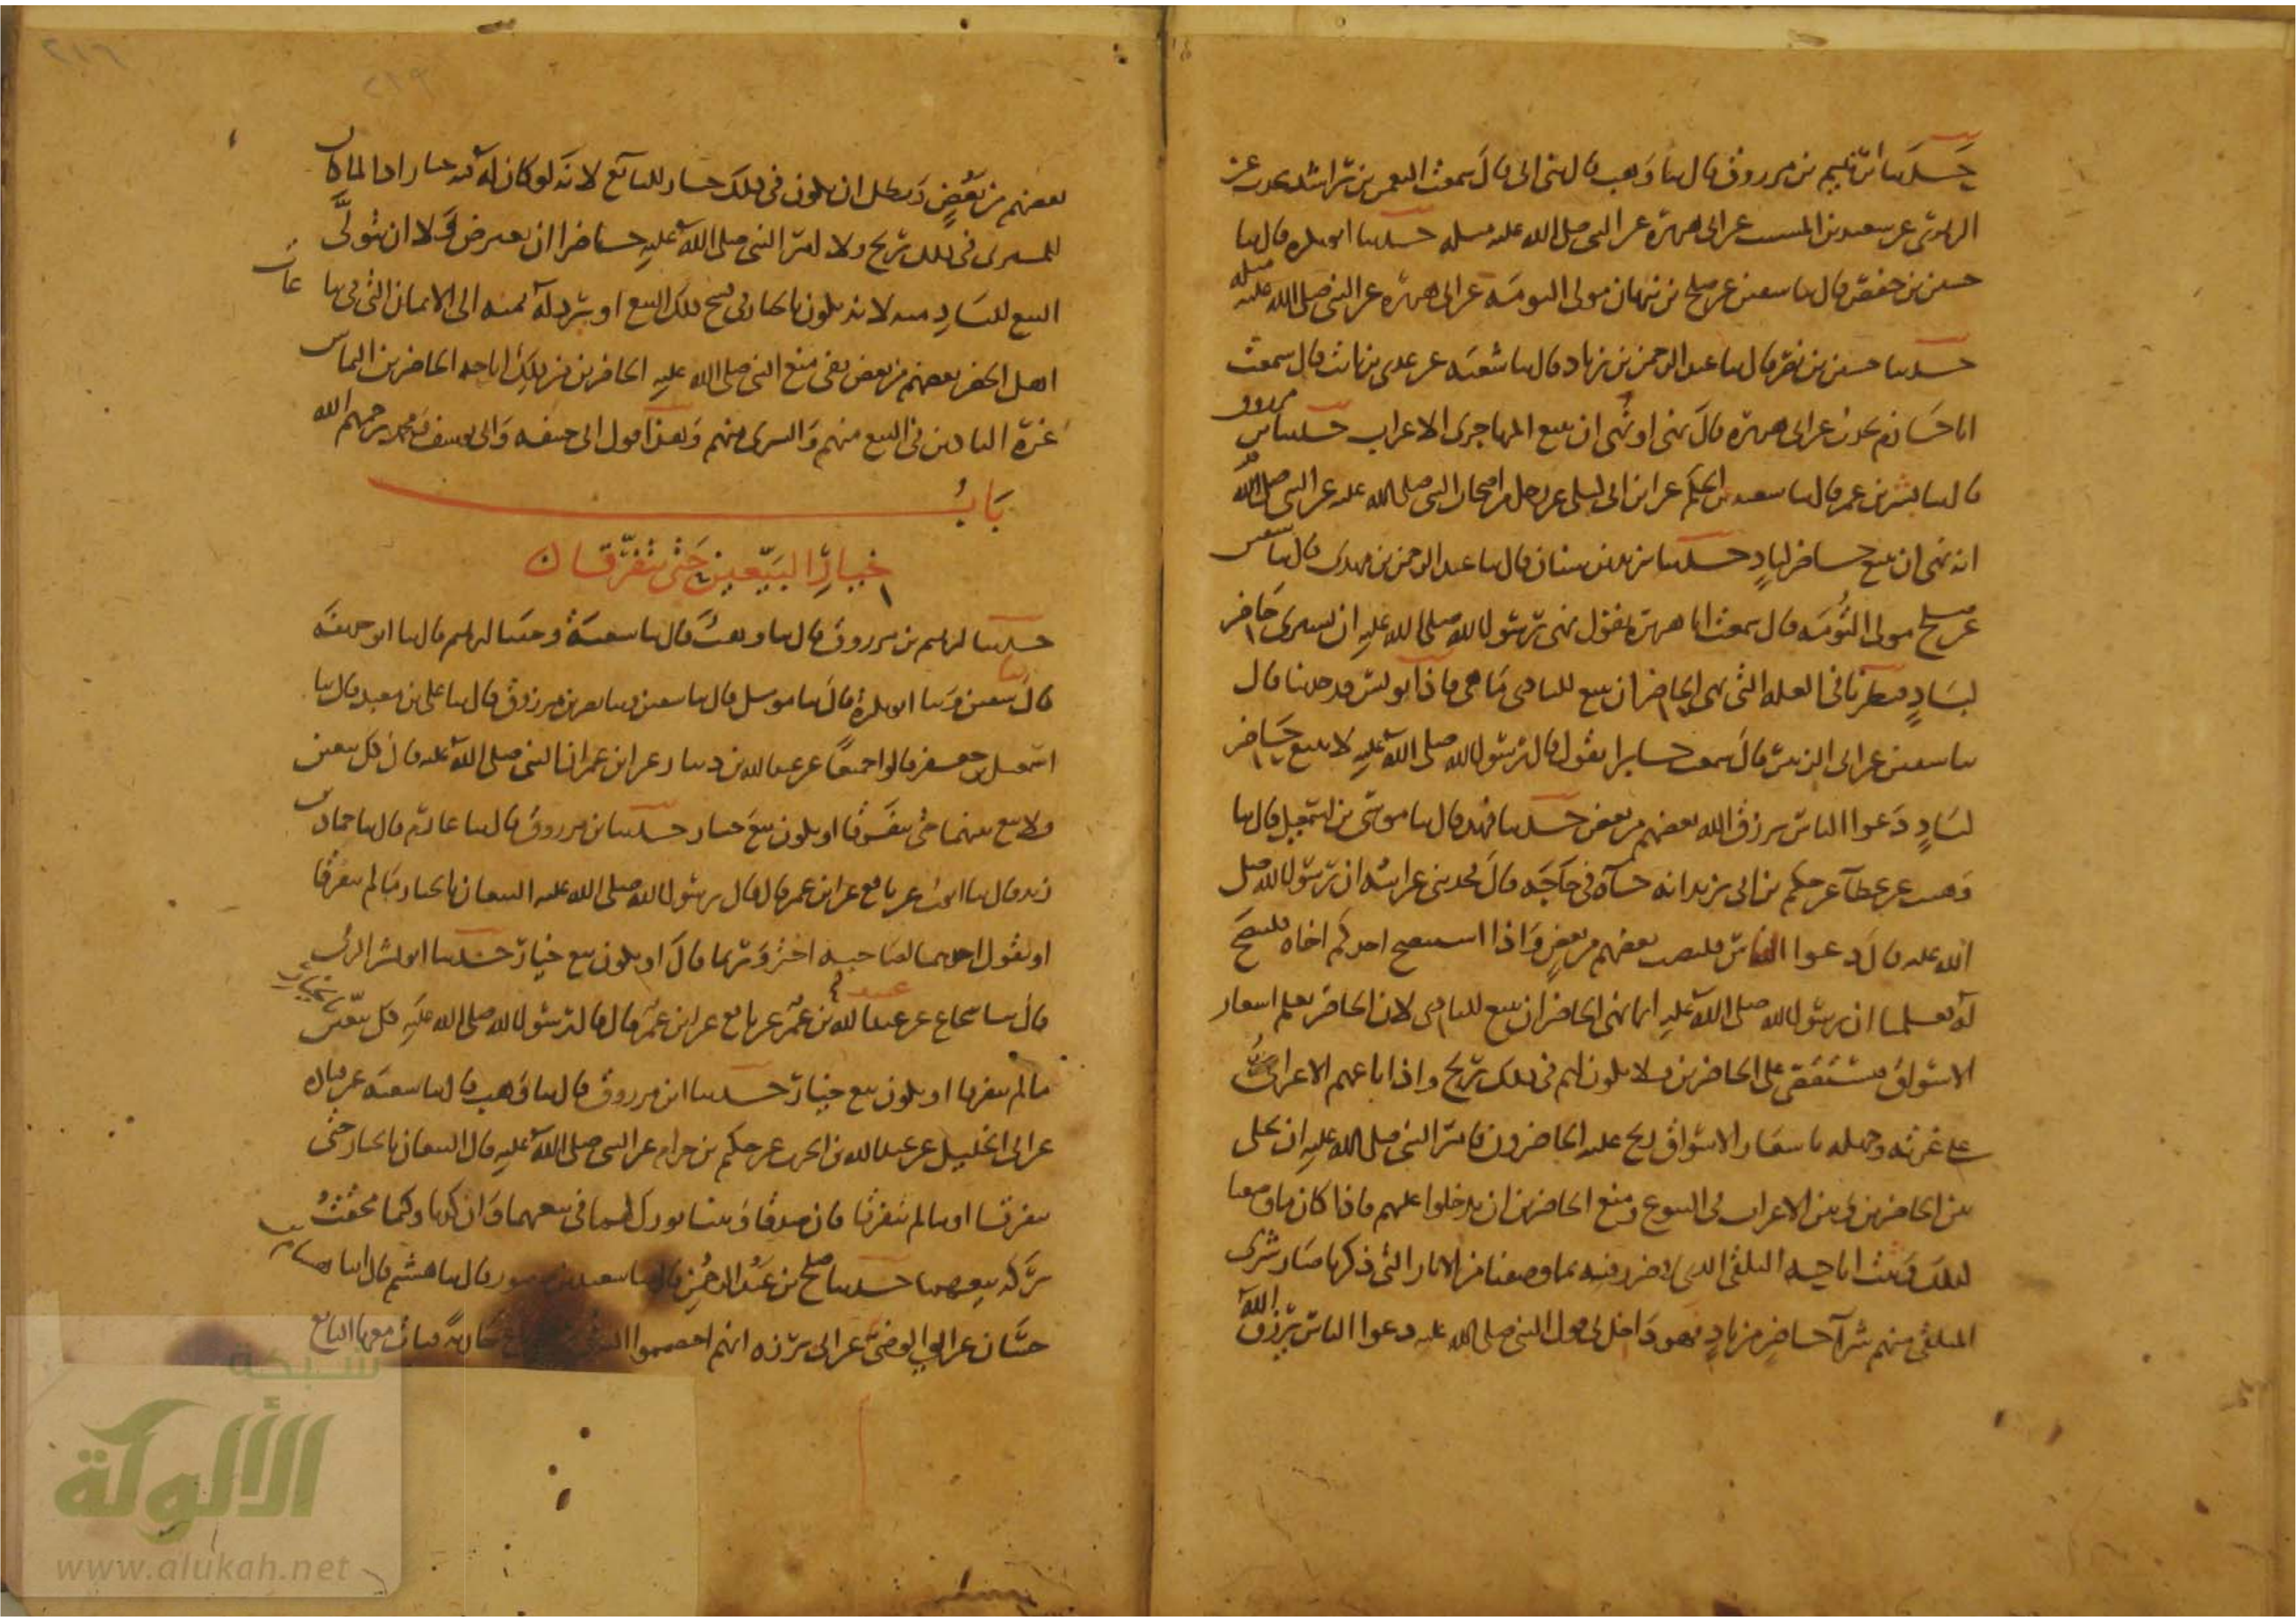 حدثنا ابرهيم بن مرزوق قال ثنا وهب قال ثنى ابى قال سمعت النعمن بن راشد يحدث عن
الزهرى عن سعيد بن المسيب عن ابى هريرة عن النبى صلى الله عليه وسلم مثله حدثنا ابو بكرة قال ثنا
حسين بن حفص قال ثنا سفين عن صلح بن نبهان مولى التومة عن ابى هريرة عن النبى صلى الله عليه مثله
حدثنا حسين بن نصر قال ثنا عبد الرحمن بن زياد قال ثنا شعبة عن عدى بن ثابت قال سمعت
ابا حازم يحدث عن ابى هريرة قال نهى او نهى ان يبيع المهاجرى الاعراب حدثنا ابن مرزوق
قال ثنا بشر بن عمر قال ثنا شعبة عن الحكم عن ابن ابى ليلى عن رجل من اصحاب النبى صلى الله عليه عن النبى صلى الله
انه نهى ان يبيع حاضر لباد حدثنا يزيد بن سنان قال ثنا عبد الرحمن بن مهدى قال ثنا سفين
عن صلح مولى التومة قال سمعت ابا هريرة يقول نهى رسول الله صلى الله عليه ان يشترى حاضر
لباد فنظرنا فى العلة التى نهى الحاضر ان يبيع للبادى ما هى فاذا يونس قد حدثنا قال
ثنا سفين عن ابى الزبير قال سمع جابرا يقول قال رسول الله صلى الله عليه لا يبيع حاضر
لباد دعوا الناس يرزق الله بعضهم من بعض حدثنا فهد قال ثنا موسى بن اسمعيل قال ثنا
وهيب عن عطاء عن حكيم بن ابى يزيد انه جاءه فى حاجة قال فحدثنى عن ابيه ان رسول الله صلى
الله عليه قال دعوا الناس فليصب بعضهم من بعض واذا استنصح احدكم اخاه فلينصح
له فعلمنا ان رسول الله صلى الله عليه انما نهى الحاضر ان يبيع للبادى لان الحاضر يعلم اسعار
الاسواق فيستقصى على الحاضرين فلا يكون لهم فى ذلك ربح واذا باعهم الاعرابى
على غرته وجهله باسعار الاسواق ربح عليه الحاضرون فامر النبى صلى الله عليه ان يخلى
بين الحاضرين وبين الاعراب فى البيوع ومنع الحاضرين ان يدخلوا عليهم فاذا كان ما وصفنا
لذلك وثبت اباحة التلقى الذى لا ضرر فيه بما وصفنا من الاثار التى ذكرنا صار شرى
المتلقى منهم شراء حاضر من باد فهو داخل فى قول النبى صلى الله عليه دعوا الناس يرزق الله
بعضهم من بعض وبطل ان يكون فى ذلك خيار للبائع لانه لو كان له فيه خيار اذا لما كان
للمشترى فى ذلك ربح ولا امر النبى صلى الله عليه حاضرا ان يعترض ولا ان يتولى
البيع للباد منه لانه يكون بالخيار فى فسخ ذلك البيع او يرد له ثمنه الى الاثمان التى فى بياعات
اهل الحضر بعضهم من بعض ففى منع النبى صلى الله عليه الحاضرين من ذلك اباحة الحاضرين التماس
غرة البادين فى البيع منهم والشرى منهم وهذا قول ابى حنيفة وابى يوسف ومحمد رحمهم الله
باب
خيار البيعين حتى يتفرقا
حدثنا ابرهيم بن مرزوق قال ثنا وهب قال ثنا شعبة وحدثنا ابرهيم قال ثنا ابو حذيفة
قال ثنا سفين وثنا ابو بكرة قال ثنا مومل قال ثنا سفين وثنا نصر بن مرزوق قال ثنا على بن معبد قال ثنا
اسمعيل بن جعفر قالوا جميعا عن عبد الله بن دينار عن ابن عمر ان النبى صلى الله عليه قال كل بيعين
فلا بيع بينهما حتى يتفرقا او يكون بيع خيار حدثنا ابن مرزوق قال ثنا عارم قال ثنا حماد بن
زيد قال ثنا ايوب عن نافع عن ابن عمر قال قال رسول الله صلى الله عليه البيعان بالخيار ما لم يتفرقا
او يقول احدهما لصاحبه اختر وربما قال او يكون بيع خيار حدثنا ابو بشر الرقى
قال ثنا شجاع عن عبيد الله بن عمر عن نافع عن ابن عمر قال قال رسول الله صلى الله عليه كل بيعين بالخيار
ما لم يتفرقا او يكون بيع خيار حدثنا ابن مرزوق قال ثنا وهب قال ثنا شعبة عن قتادة
عن ابى الخليل عن عبد الله بن الحرث عن حكيم بن حزام عن النبى صلى الله عليه قال البيعان بالخيار حتى
يتفرقا او ما لم يتفرقا فان صدقا وبينا بورك لهما فى بيعهما وان كذبا وكتما محقت
بركة بيعهما حدثنا صلح بن عبد الرحمن قال ثنا سعيد بن منصور قال ثنا هشيم قال انا هشام بن
حسان عن ابى الوضى عن ابى برزه انهم اختصموا اليه جارية فبات معها البائع
شبكة
الألوكة
www.alukah.net